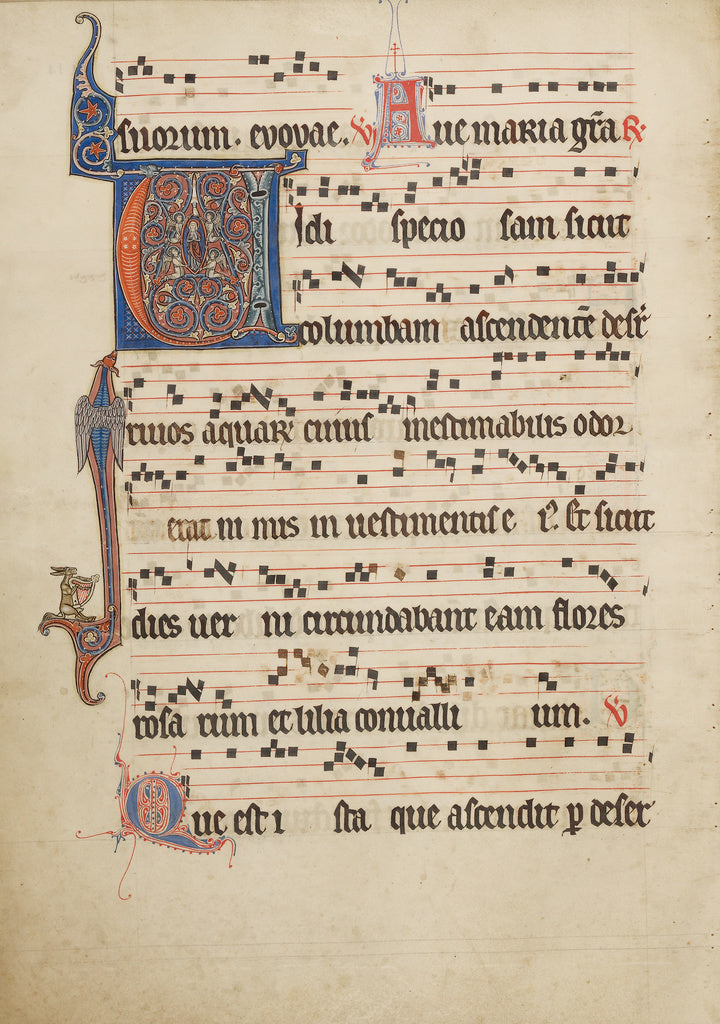 suorum. evovae. V Aue maria gr̄a R
Vidi specio sam sicut
columbam ascendentē desr̄
riuos aquaR cuius inestimabilis odor
erat in mis in uestimentis e i9. Et sicut
dies uer ni circumdabant eam flores
rosa rum et lilia conualli um. V
Que est i sta que ascendit ꝑ deser